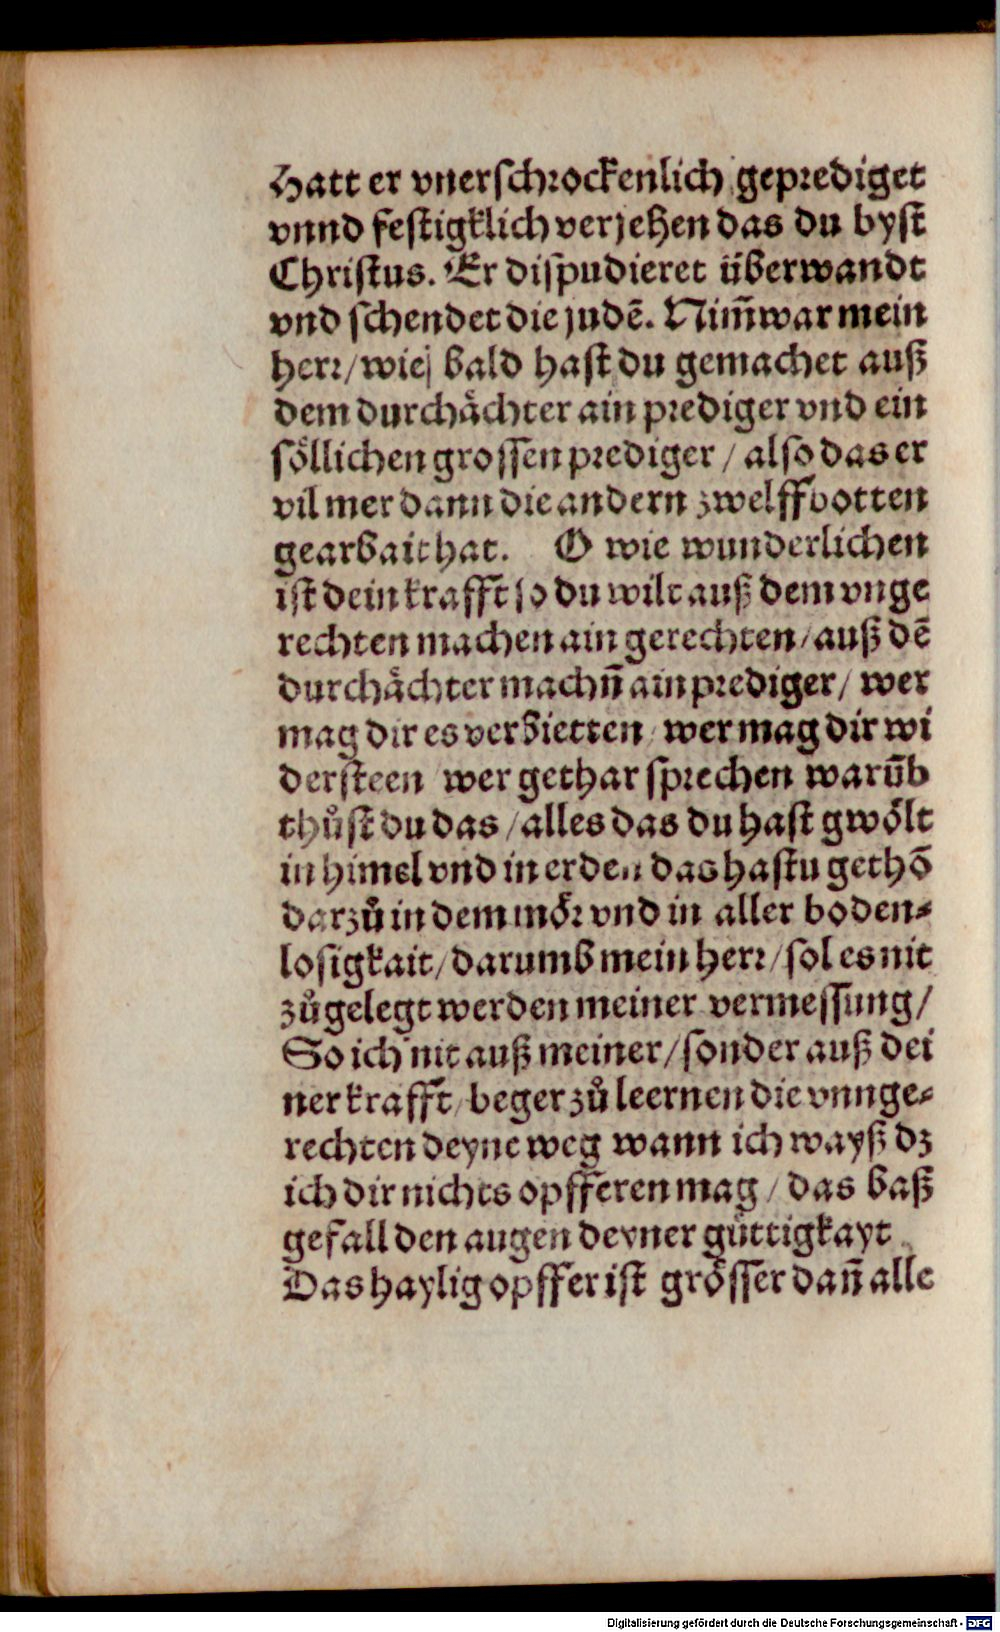 Hatt er vnerschrockenlich geprediget
vnnd festigklich verjehen das du byst
Christus. Er dispudieret überwandt
vnd schendet die judē. Nim̄war mein
herr/wie bald hast du gemachet auß
dem durchåchter ain prediger vnd ein
söllichen grossen prediger / also das er
vil mer dann die andern zwelffbotten
gearbait hat. O wie wunderlichen
ist dein krafft so du wilt auß dem vnge
rechten machen ain gerechten/auß dē
durchåchter machn̄ ain prediger/ wer
mag dir es verbietten/ wer mag dir wi
dersteen wer gethar sprechen warūb
thůst du das /alles das du hast gwölt
in himel vnd in erden das hastu gethō
darzů in dem mör vnd in aller boden-
losigkait/darumb mein herr/sol es nit
zůgelegt werden meiner vermessung/
So ich nit auß meiner/sonder auß dei
ner krafft/beger zů leernen die vnnge-
rechten deyne weg wann ich wayß dz
ich dir nichts opfferen mag/ das baß
gefall den augen deyner güttigkayt
Das haylig opffer ist grösser dan̄ alle
Digitalisierung gefördert durch die Deutsche Forschungsgemeinschaft - DFG